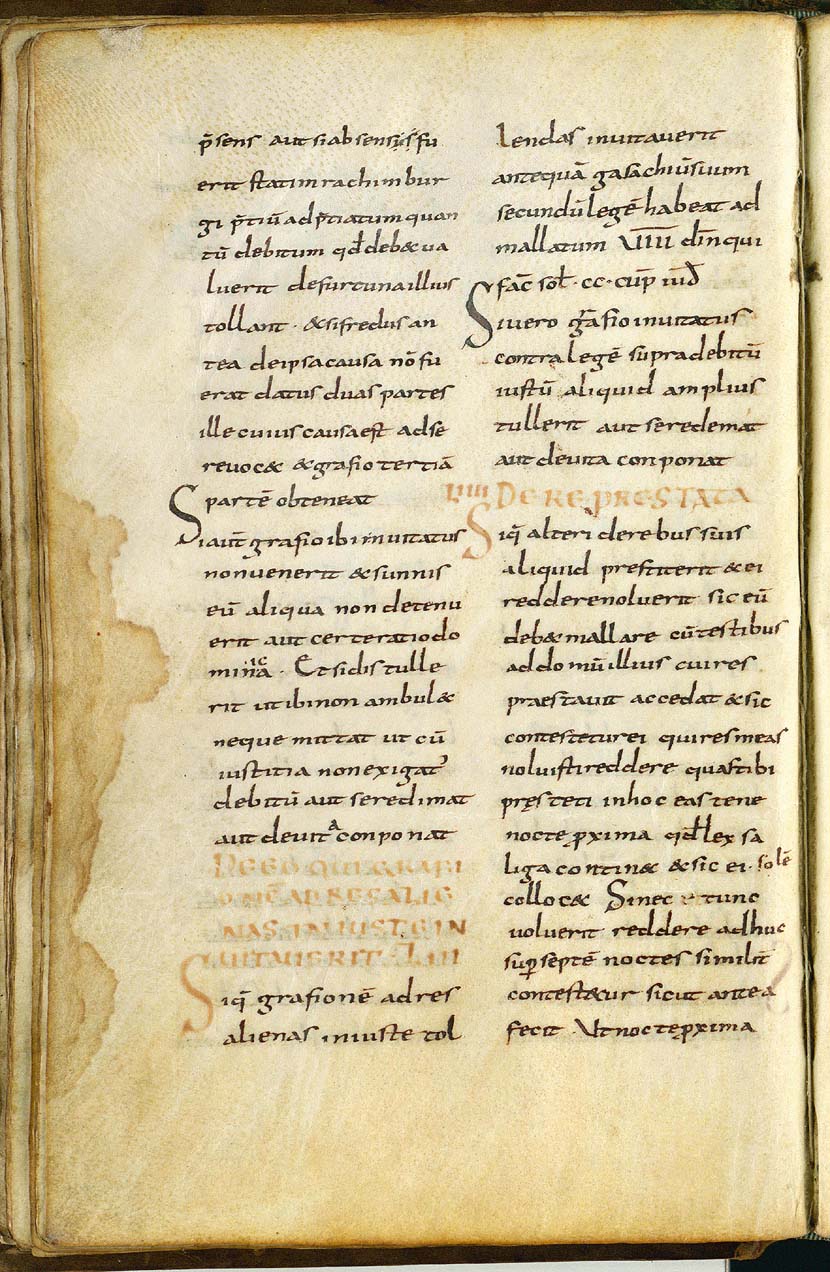 p̄sens aut si absens sfu
erit statim rachinbur
gi p̄tiū ad p̄tiatum quan
tū debitum qđ debet ua
luerit defurtuna illius
tollant · & si fredus an
tea de ipsa causa nō fu
erat datus duas partes
ille cuius causa est ad se
reuocet & grafio tertiā
partē obteneat
Si aut̄ grafio ibi inuitatus
non uenerit & sunnis
eū aliqua non detenu
erit aut certe ratio do
minica · Et si dis tulle
rit ut ibi non ambulet
neque mittat ut cū
iustitia non exigat᾿
debitū aut se redimat
aut de uita conponat
DE EO QUI GRAFI
ONĒ AD RES ALIE
NAS INIUSTE IN
UITAUERIT LIII
Siq̄ grafionē ad res
alienas iniuste tol
lendas inuitauerit
antequā gasachiū suum
secundū legē habeat ad
mallatum VIIII din̄ qui
fac̄ sol̄ · cc · cup̄ iuđ
Si uero grafio inuitatus
contra legē supra debitū
iustū aliquid amplius
tullerit aut se redemat
aut de uita conponat
LIIII DE RE PRESTATA
Siq̄ alteri de rebus suis
aliquid prestiterit & ei
reddere noluerit sic eū
debet mallare cū testibus
ad domū illius cui res
praestauit accedat & sic
contestetur ei qui res meas
noluisti reddere quas tibi
pręsteti in hoc eas tene
nocte ꝓxima qđ lex sa
liga continet & sic ei · solē
collocet Si nec tunc
uoluerit reddere adhuc
sup̄ septē noctes similit̄
contestetur sicut antea
fecit · Ut nocte ꝓxima